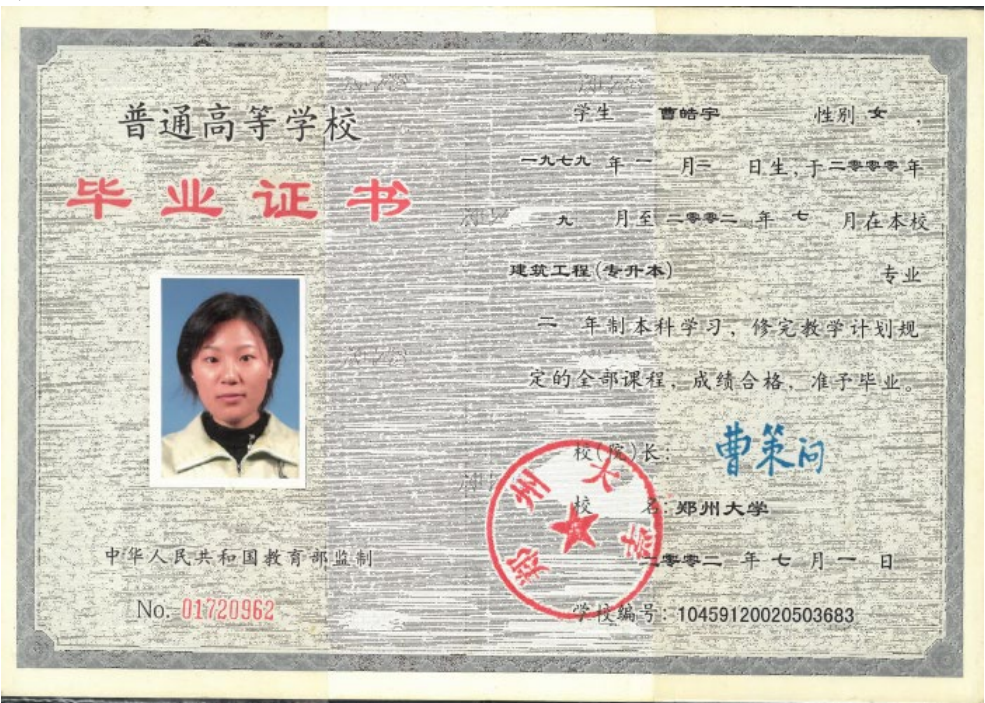 普通高等学校
毕业证书
中华人民共和国教育部监制
No. 01720962
学生 曹皓宇 性别 女 ,
一九七九 年 一 月 二 日生, 于 二零零零 年
九 月至 二零零二 年 七 月在本校
建筑工程(专升本) 专业
二 年制本科学习, 修完教学计划规
定的全部课程, 成绩合格, 准予毕业。
校(院)长: 曹策问
校 名: 郑州大学
二零零二 年 七 月 一 日
学校编号: 10459120020503683
郑州大学